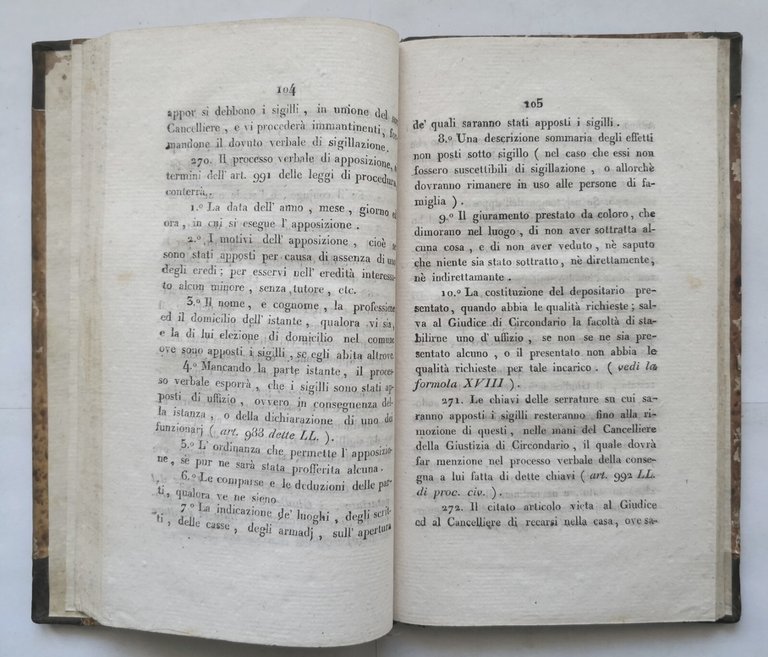 104
appor si debbono i sigilli , in unione del suo
Cancelliere , e vi procederà immantinenti , for-
mandone il dovuto verbale di sigillazione.
270. Il processo verbale di apposizione, a
termini dell' art. 991 delle leggi di procedura
conterrà.
1.º La data dell' anno , mese , giorno ed
ora , in cui si esegue l' apposizione.
2.º I motivi dell' apposizione , cioè se
sono stati apposti per causa di assenza di uno
degli eredi ; per esservi nell' eredità interessa-
to alcun minore , senza tutore , etc.
3.º Il nome , e cognome , la professione
ed il domicilio dell' istante , qualora vi sia,
e la di lui elezione di domicilio nel comune
ove sono apposti i sigilli , se egli abita altrove.
4.º Mancando la parte istante , il proces-
so verbale esporrà , che i sigilli sono stati ap-
posti di uffizio , ovvero in conseguenza del-
la istanza , o della dichiarazione di uno dei
funzionarj ( art. 988 dette LL. ).
5.º L' ordinanza che permette l' apposizio-
ne , se pur ne sarà stata profferita alcuna.
6.º Le comparse e le deduzioni delle par-
ti , qualora ve ne sieno
7º La indicazione de' luoghi , degli scrit-
ti , delle casse , degli armadj , sull' apertura
105
de' quali saranno stati apposti i sigilli .
8.º Una descrizione sommaria degli effetti
non posti sotto sigillo ( nel caso che essi non
fossero suscettibili di sigillazione , o allorchè
dovranno rimanere in uso alle persone di fa-
miglia ).
9.º Il giuramento prestato da coloro , che
dimorano nel luogo , di non aver sottratta al-
cuna cosa , e di non aver veduto , nè saputo
che niente sia stato sottratto , nè direttamente,
nè indirettamante.
10.º La costituzione del depositario pre-
sentato , quando abbia le qualità richieste ; sal-
va al Giudice di Circondario la facoltà di sta-
bilirne uno d' uffizio , se non se ne sia pre-
sentato alcuno , o il presentato non abbia le
qualità richieste per tale incarico. ( vedi la
formola XVIII ).
271. Le chiavi delle serrature su cui sa-
ranno apposti i sigilli resteranno fino alla ri-
mozione di questi , nelle mani del Cancelliere
della Giustizia di Circondario , il quale dovrà
far menzione nel processo verbale della conse-
gna a lui fatta di dette chiavi ( art. 992 LL.
di proc. civ. ).
272. Il citato articolo vieta al Giudice
ed al Cancelliere di recarsi nella casa , ove sa-